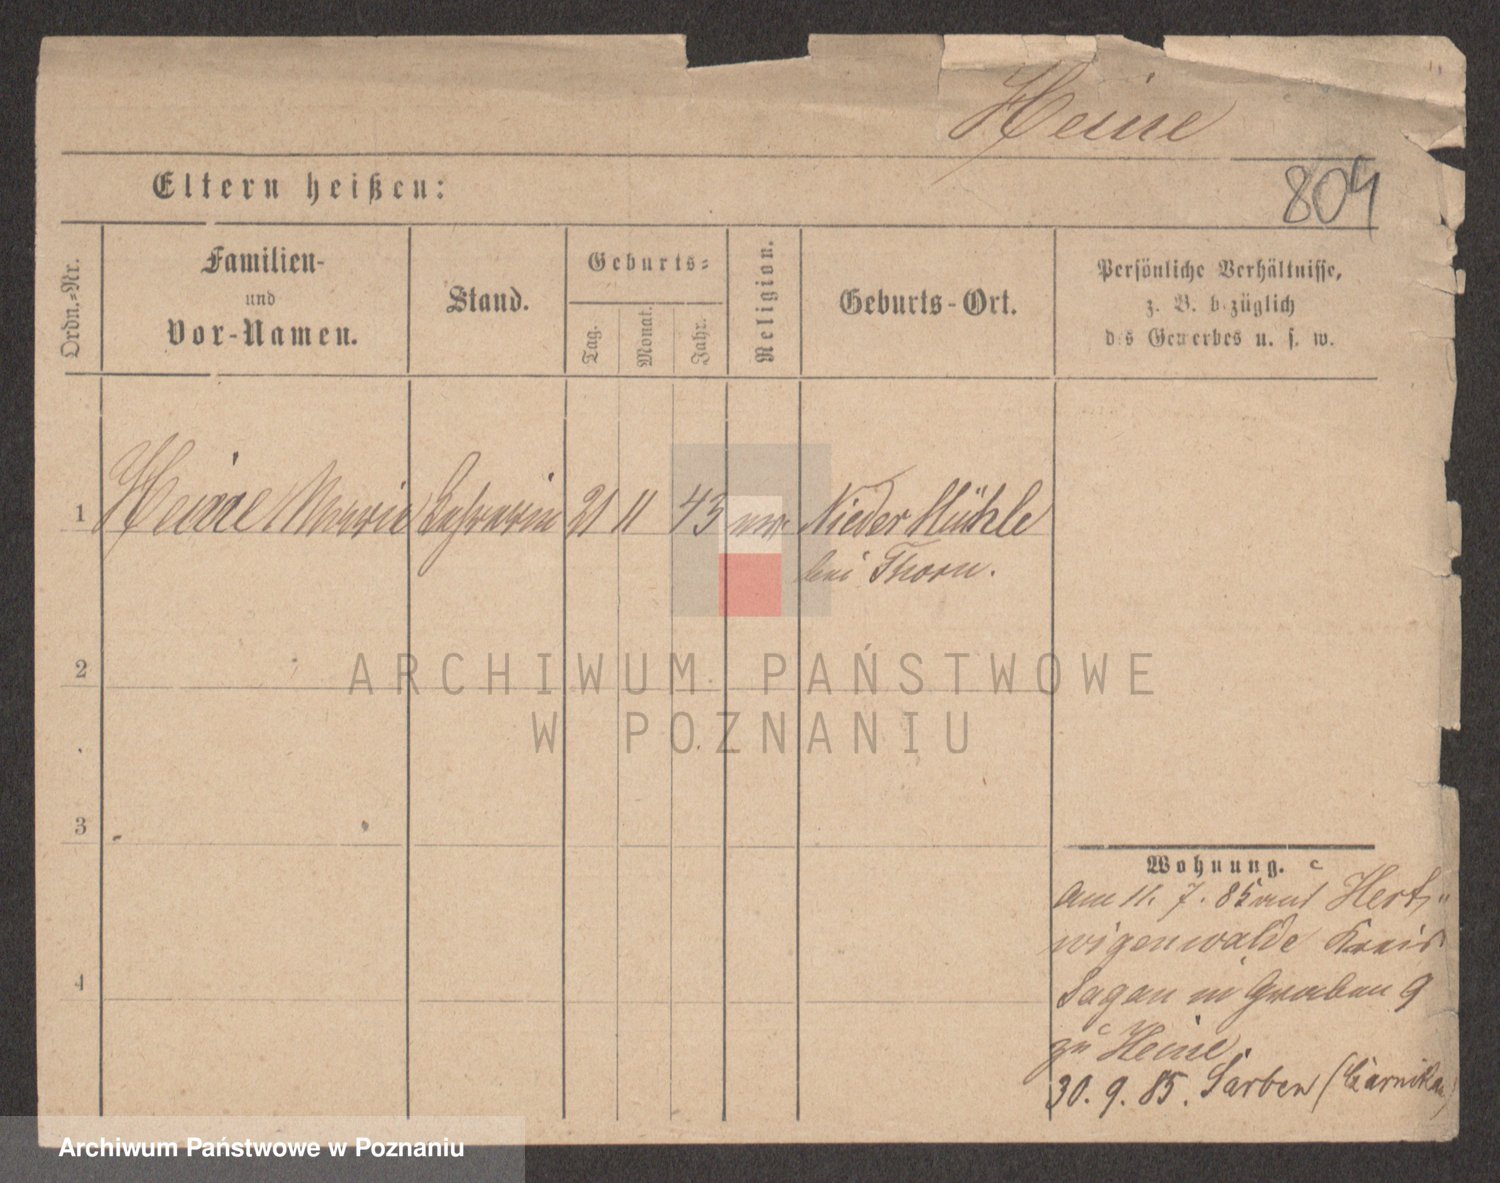 Heine
804
Eltern heißen:
Ordn.-Nr.
Familien-
und
Vor-Namen.
Stand.
Geburts-
Tag.
Monat.
Jahr.
Religion.
Geburts-Ort.
Persönliche Verhältnisse,
z. B. bezüglich
des Gewerbes u. s. w.
1 Heine Marie Lehrerin 21 11 43 Nieder Mühle
bei Thorn.
2
3
4
Wohnung.
am 11. 7. 85 aus Herts-
wigenwalde Kreis
Sagan in Graben 9
zu Heine.
30. 9. 85. Sarben (Czarnikau)
ARCHIWUM PAŃSTWOWE
W POZNANIU
Archiwum Państwowe w Poznaniu